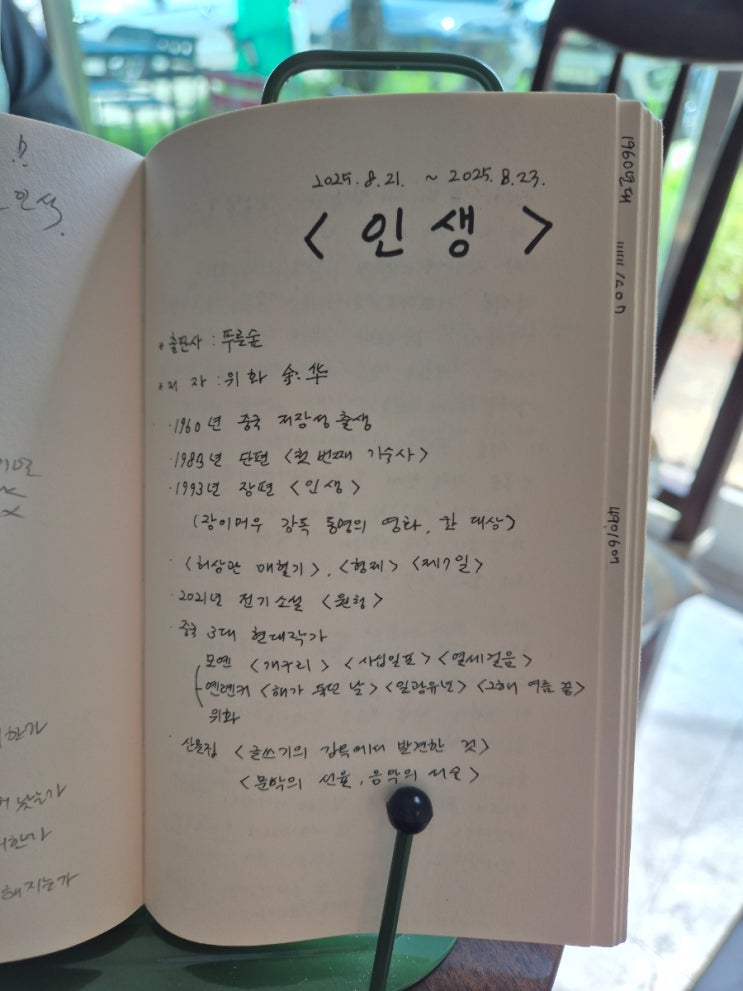 2025.8.21. ~ 2025.8.23.
<인생>
* 출판사 : 푸른숲
* 저 자 : 위화 余华
· 1960년 중국 저장성 출생
· 1983년 단편 <첫번째 기숙사>
· 1993년 장편 <인생>
(장이머우 감독 동명의 영화, 칸 대상)
· <허삼관 매혈기>, <형제> <제7일>
· 2021년 전기소설 <원청>
· 중국 3대 현대작가
모옌 <개구리> <사십일포> <열세걸음>
옌롄커 <해가 죽던 날> <일광유년> <그해 여름 끝>
위화
· 산문집 <글쓰기의 감옥에서 발견한 것>
<문학의 선율, 음악의 서술>
1960년대
한가
났는가
한가
해지는가